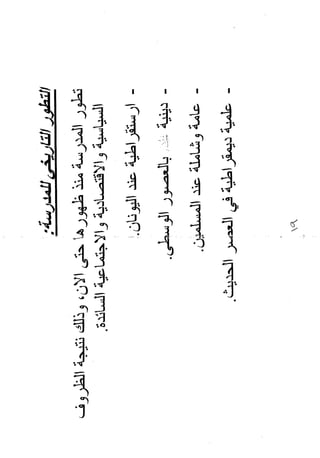 التطور التاريخي للمدرسة:
تطور المدرسة منذ ظهورها حتى الآن، وذلك نتيجة الظروف
السياسية والاقتصادية والاجتماعية السائدة.
- ارستقراطية عند اليونان.
- دينية بالعصور الوسطى.
- عامة وشاملة عند المسلمين.
- علمية ديمقراطية في العصر الحديث.
١٩